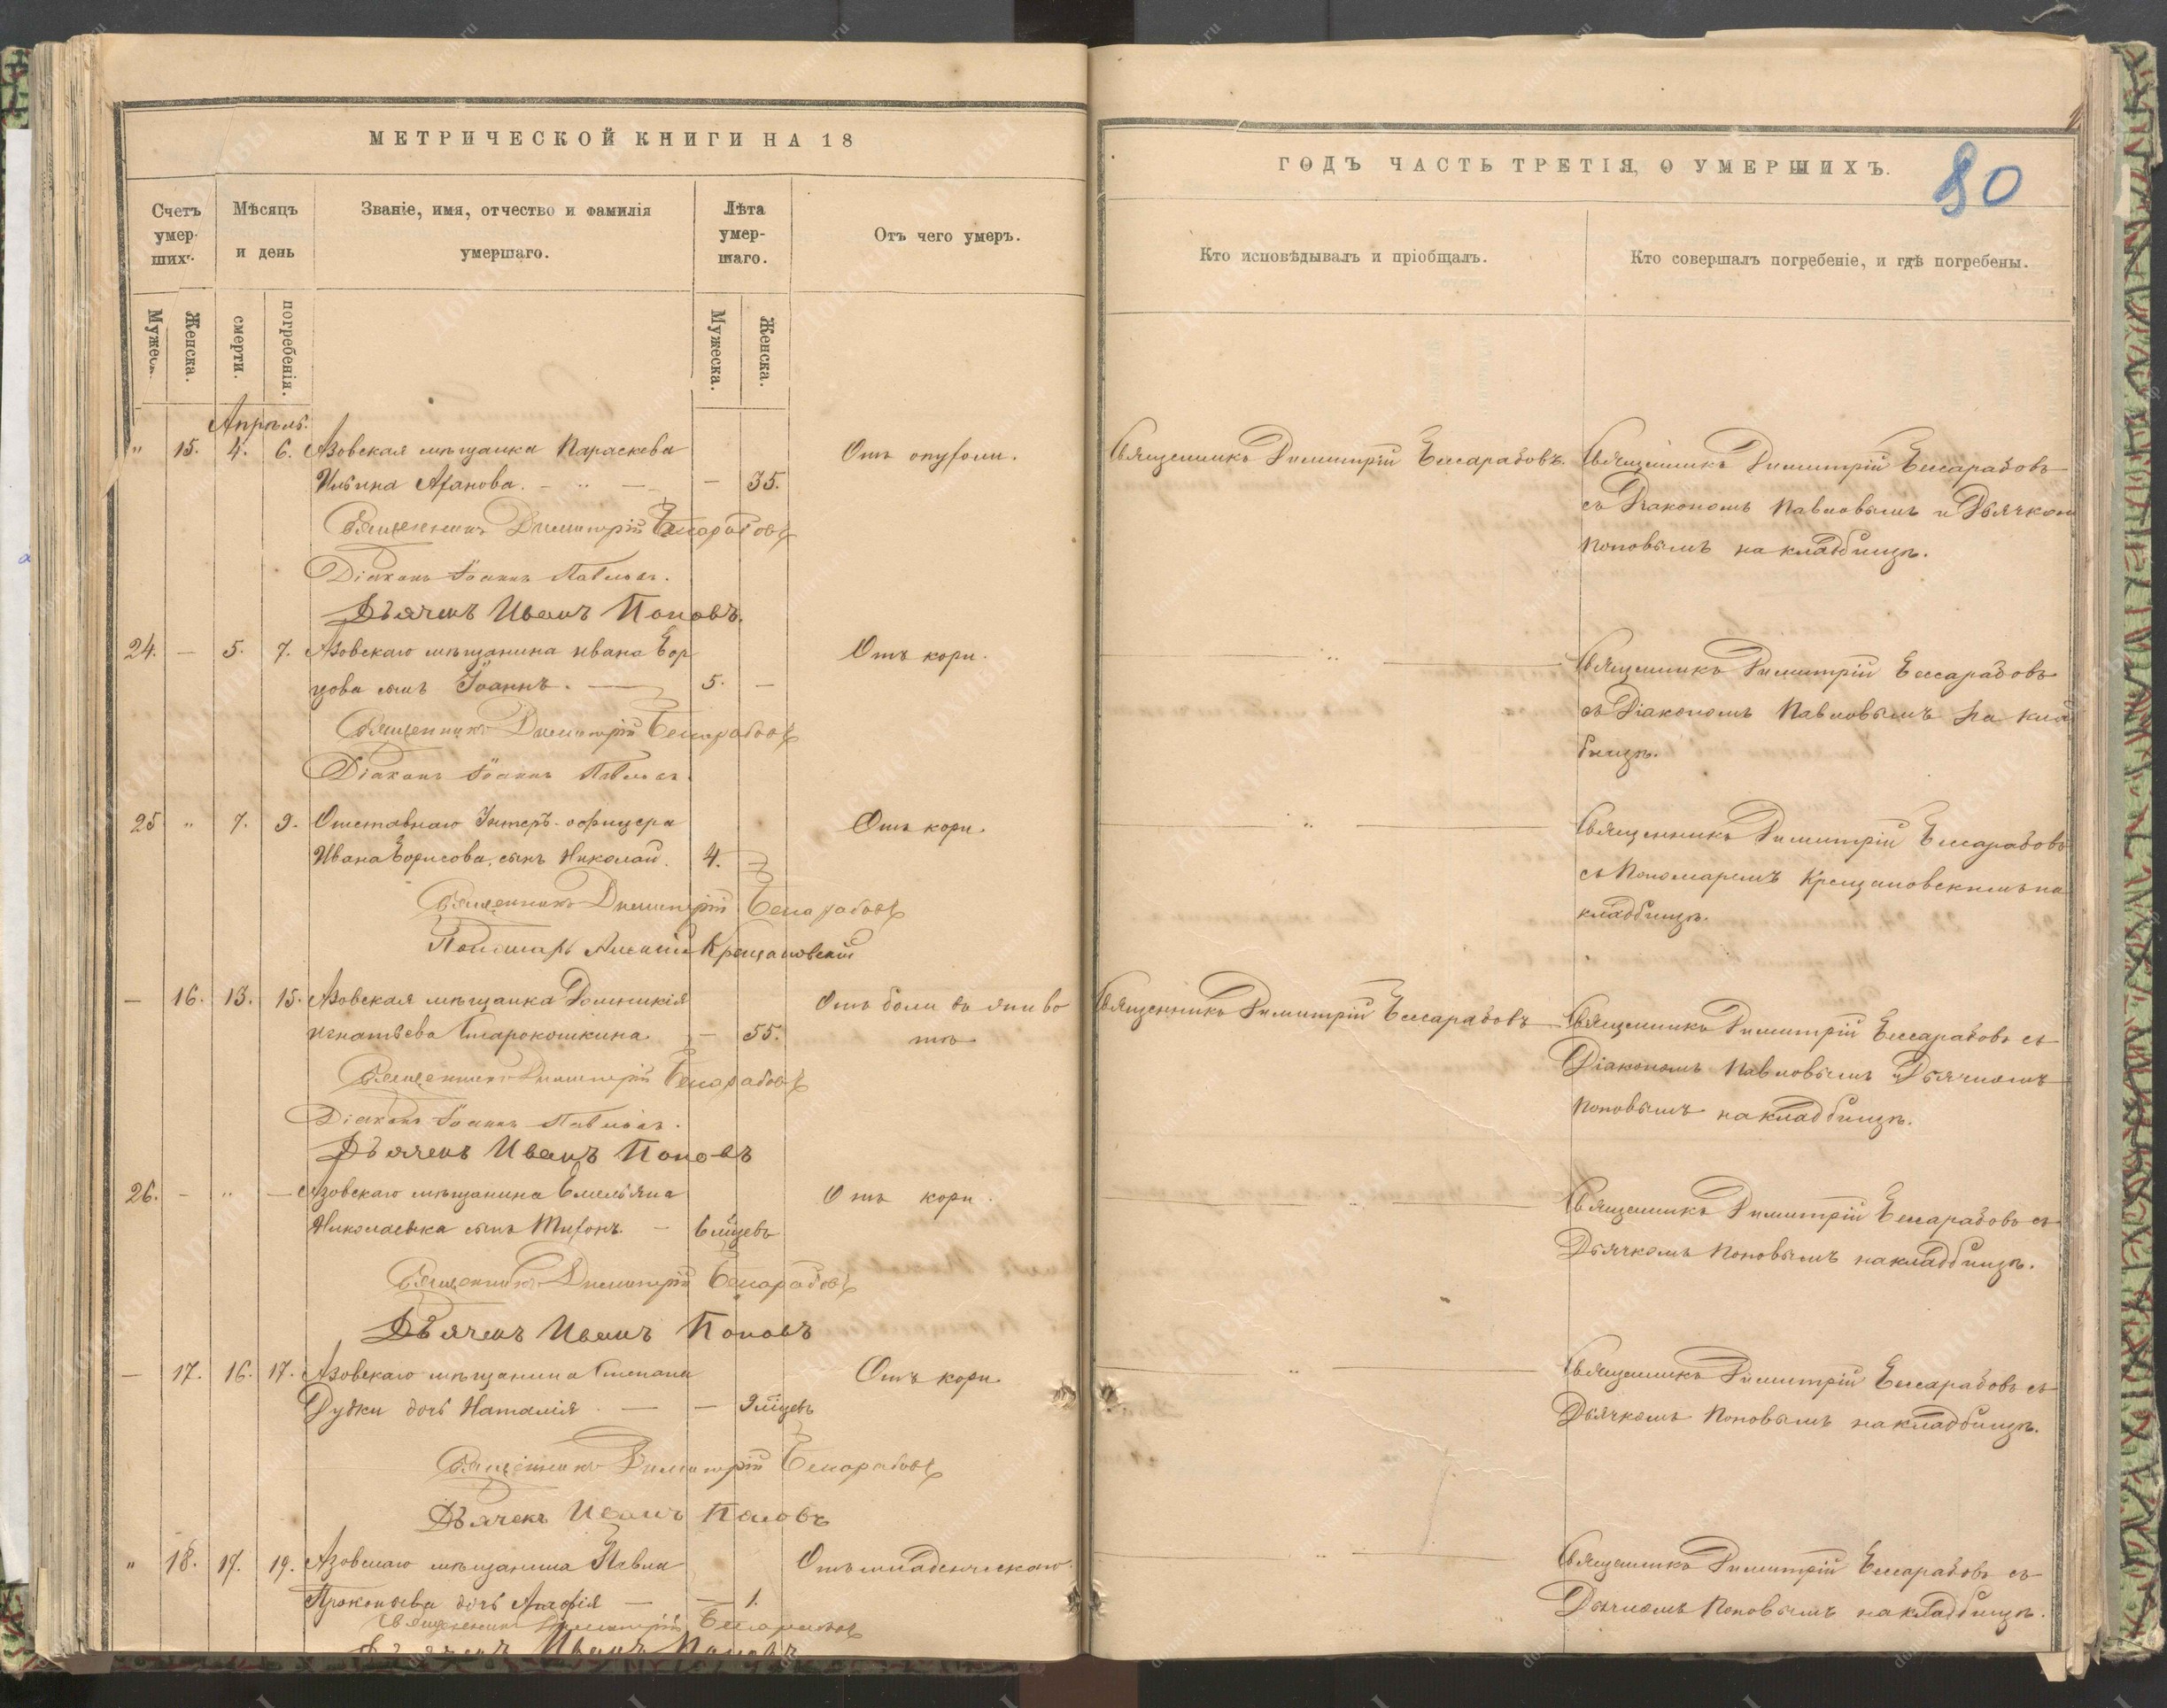 МЕТРИЧЕСКОЙ КНИГИ НА 18
Счетъ умерших.
Мѣсяцъ и день
Званіе, имя, отчество и фамилія умершаго.
Лѣта умершаго.
Отъ чего умеръ.
Мужеск.
Женска.
смерти.
погребенія.
Мужеска.
Женска.
Апрѣль.
" 15. 4. 6. Азовская мѣщанка Параскева Отъ опухоли.
Ильина Аганова. - " - - 35.
Священникъ Димитрій Бессарабовъ
Діаконъ Іоаннъ Павловъ.
Дьячекъ Иванъ Поповъ.
24. - 5. 7. Азовскаго мѣщанина Ивана Бор Отъ кори.
цова сынъ Іоаннъ. - 5. -
Священникъ Димитрій Бессарабовъ
Діаконъ Іоаннъ Павловъ.
25 " 7. 9. Отставнаго Унтеръ-офицера Отъ кори.
Ивана Борисова, сынъ Николай. 4. -
Священникъ Димитрій Бессарабовъ
Пономарь Крещановскій
- 16. 13. 15. Азовская мѣщанка Домникія Отъ боли въ живо
Игнатьева Старокошкина - 55. тѣ
Священникъ Димитрій Бессарабовъ
Діаконъ Іоаннъ Павловъ.
Дьячекъ Иванъ Поповъ
26. - " - Азовскаго мѣщанина Емельяна Отъ кори.
Николаенка сынъ Тихонъ. - 6 мѣцевъ
Священникъ Димитрій Бессарабовъ
Дьячекъ Иванъ Поповъ
- 17. 16. 17. Азовскаго мѣщанина Степана Отъ кори.
Дудки дочь Наталія. - - 9 мѣцевъ
Священникъ Димитрій Бессарабовъ
Дьячекъ Иванъ Поповъ
" 18. 17. 19. Азовскаго мѣщанина Павла Отъ младенческаго.
Прокопьева дочь Агафія - - 1.
Священникъ Димитрій Бессарабовъ
Дьячекъ Иванъ Поповъ
ГОДЪ ЧАСТЬ ТРЕТІЯ, О УМЕРШИХЪ.
80
Кто исповѣдывалъ и пріобщалъ.
Кто совершалъ погребеніе, и гдѣ погребены.
Священникъ Димитрій Бессарабовъ. Священникъ Димитрій Бессарабовъ
съ Діакономъ Павловымъ и Дьячкомъ
Поповымъ на кладбищѣ.
- " - Священникъ Димитрій Бессарабовъ
съ Діакономъ Павловымъ на клад
бищѣ.
- " - Священникъ Димитрій Бессарабовъ
съ Пономаремъ Крещановскимъ на
кладбищѣ.
Священникъ Димитрій Бессарабовъ Священникъ Димитрій Бессарабовъ съ
Діакономъ Павловымъ и Дьячкомъ
Поповымъ на кладбищѣ.
- " - Священникъ Димитрій Бессарабовъ съ
Дьячкомъ Поповымъ на кладбищѣ.
- " - Священникъ Димитрій Бессарабовъ съ
Дьячкомъ Поповымъ на кладбищѣ.
- " - Священникъ Димитрій Бессарабовъ съ
Дьячкомъ Поповымъ на кладбищѣ.